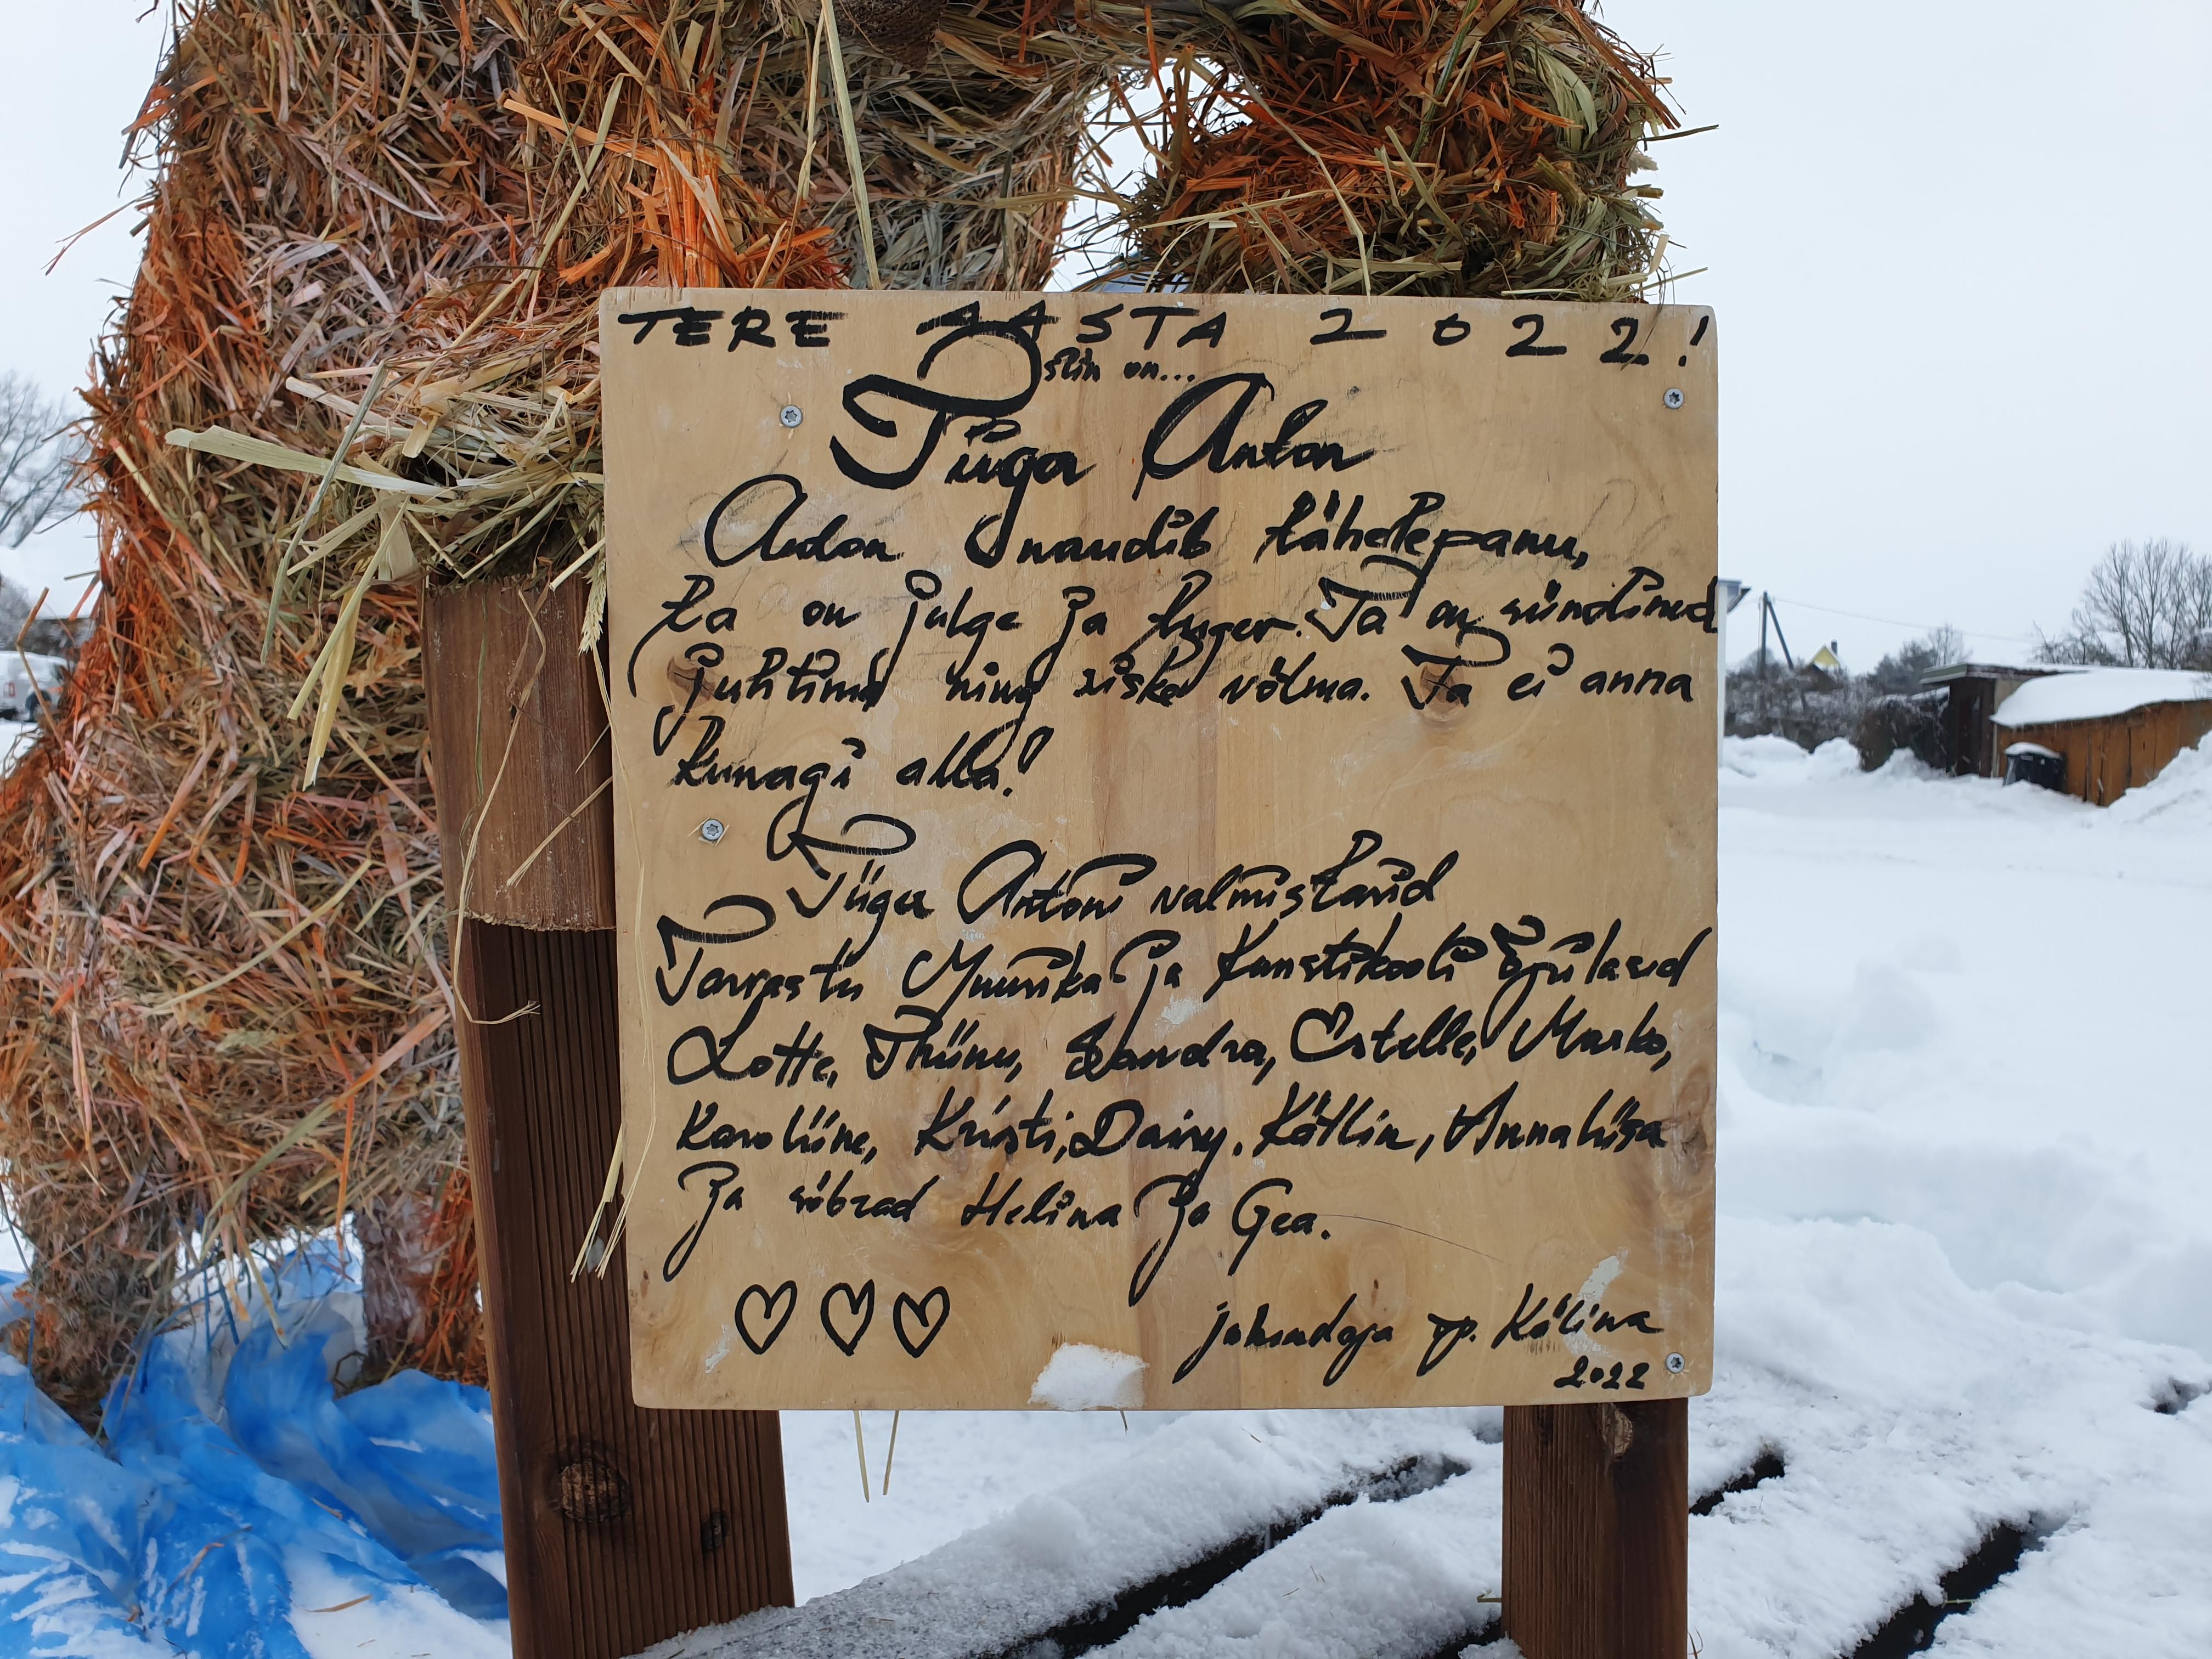 TERE AASTA 2022!
Siin on...
Tiiger Anton
Anton naudib tähelepanu,
ta on julge ja tugev. Ta on sündinud
juhtima ning riske võtma. Ta ei anna
kunagi alla!
Tiiger Antoni valmistasid
Tarvastu Muusika ja Kunstikooli õpilased
Lotte, Triinu, Sandra, Estelle, Marko,
Karoliine, Kristi, Dairy, Kätlin, Annaliisa
ja sõbrad Helina ja Gea.
juhendaja õp. Kälina
2022